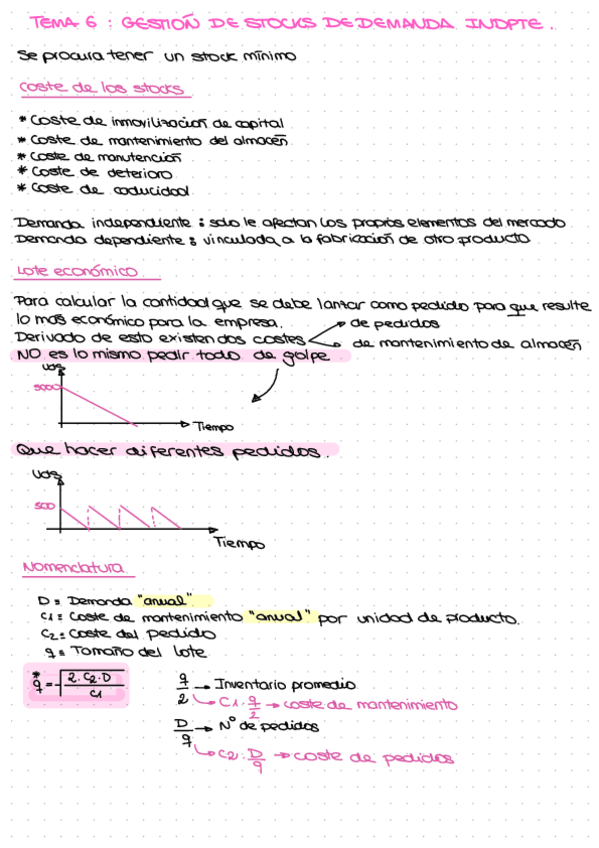 TEMA 6 : GESTIÓN DE STOCKS DE DEMANDA INDPTE.
Se procura tener un stock mínimo
Coste de los stocks
* Coste de inmovilización de capital
* Coste de mantenimiento del almacén
* Coste de manutención
* Coste de deterioro
* Coste de caducidad
Demanda independiente : solo le afectan los propios elementos del mercado
Demanda dependiente : vinculada a la fabricación de otro producto
Lote económico
Para calcular la cantidad que se debe lanzar como pedido para que resulte
lo mas económico para la empresa.
Derivado de esto existen dos costes → de pedidos
→ de mantenimiento de almacén
NO es lo mismo pedir todo de golpe
Uds
5000
Tiempo
Que hacer diferentes pedidos.
Uds
500
Tiempo
Nomenclatura
D = Demanda "anual"
C1 = Coste de mantenimiento "anual" por unidad de producto.
C2 = Coste del pedido
q = Tamaño del lote
q* = √(2·C2·D / C1)
q/2 → Inventario promedio
→ C1 · q/2 → coste de mantenimiento
D/q → Nº de pedidos
→ C2 · D/q → coste de pedidos